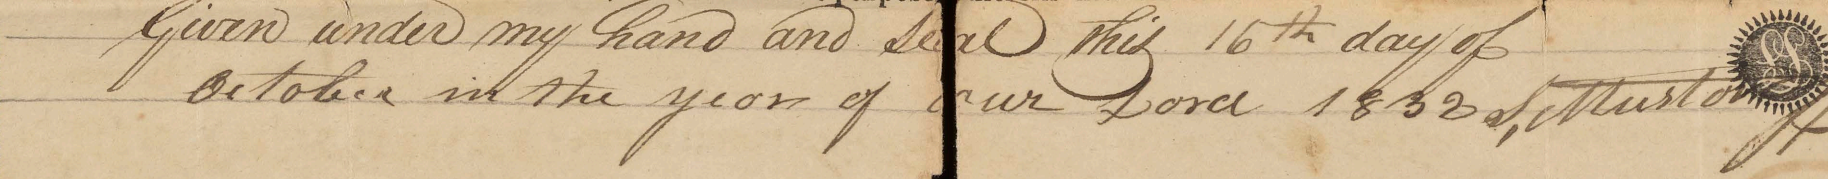 Given under my hand and seal this 16th day of
October in the year of our Lord 1832 S, Muston
LS